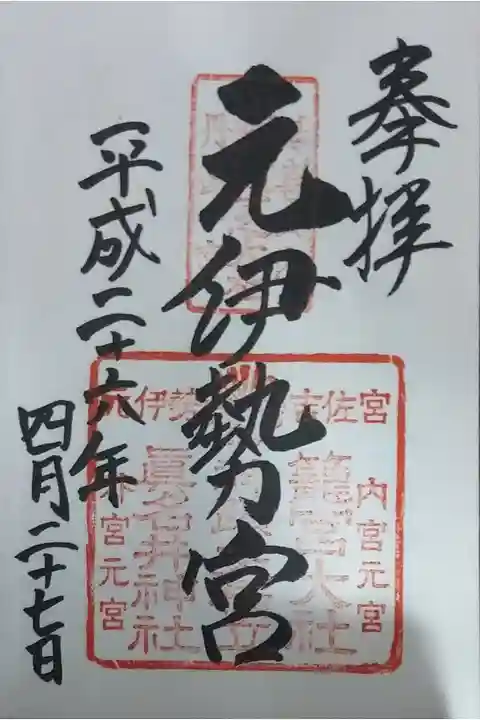 奉拝
元伊勢宮
平成二十六年
四月二十七日
元伊勢
吉佐宮
内宮元宮
籠宮大社
眞名井神社
宮元宮